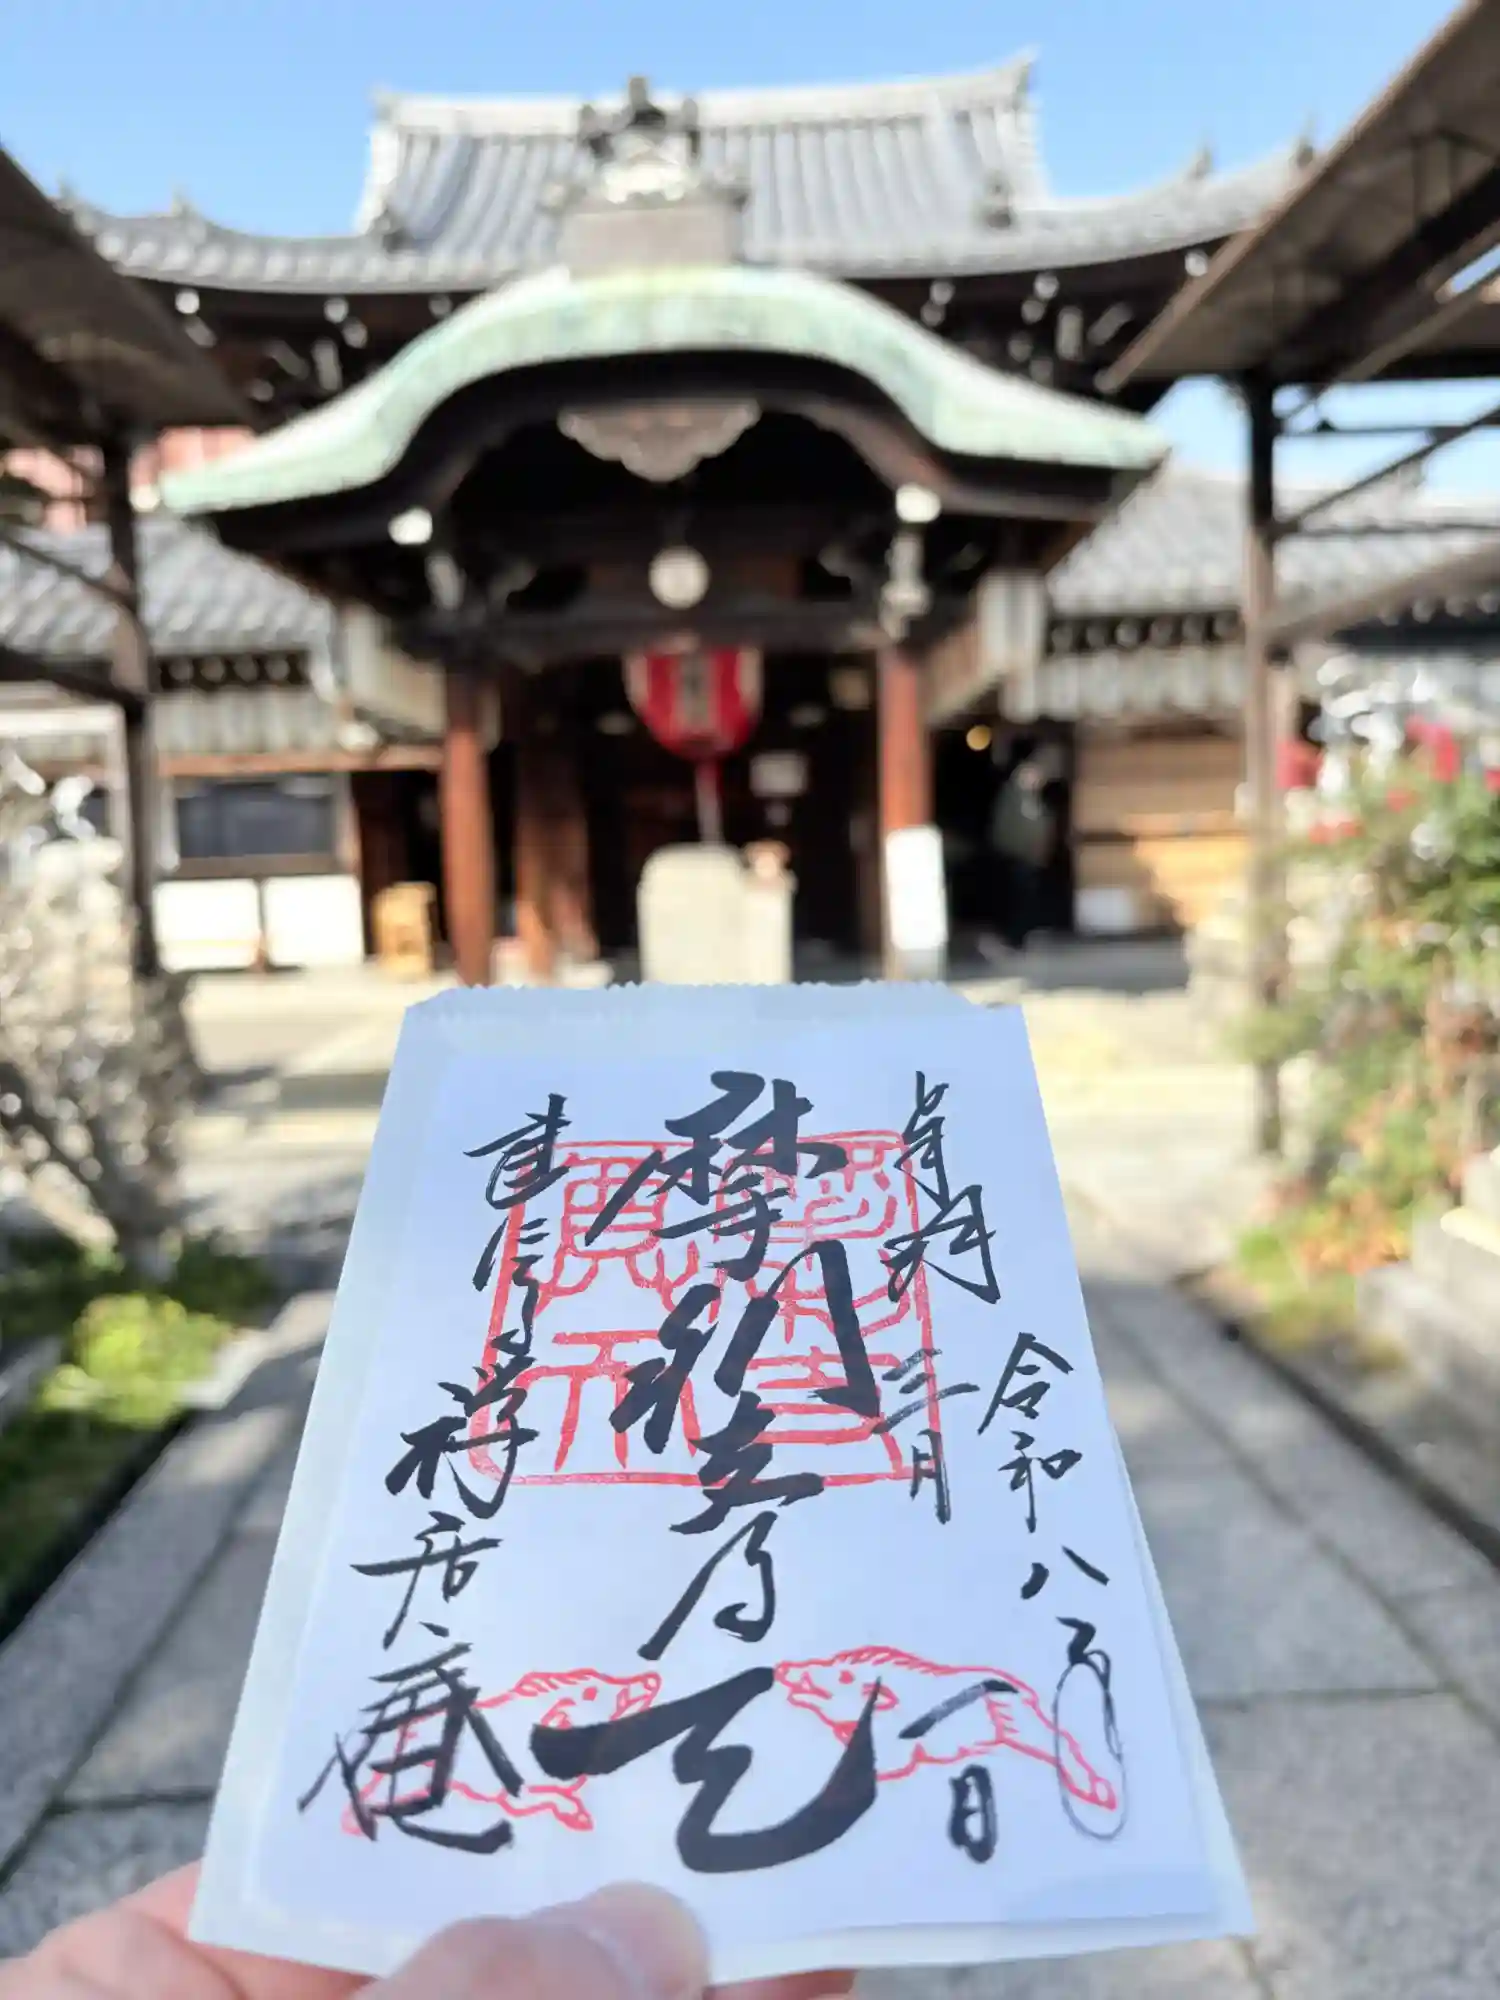 奉拝
令和八年
三月一日
摩利支尊天
建仁寺禅居庵